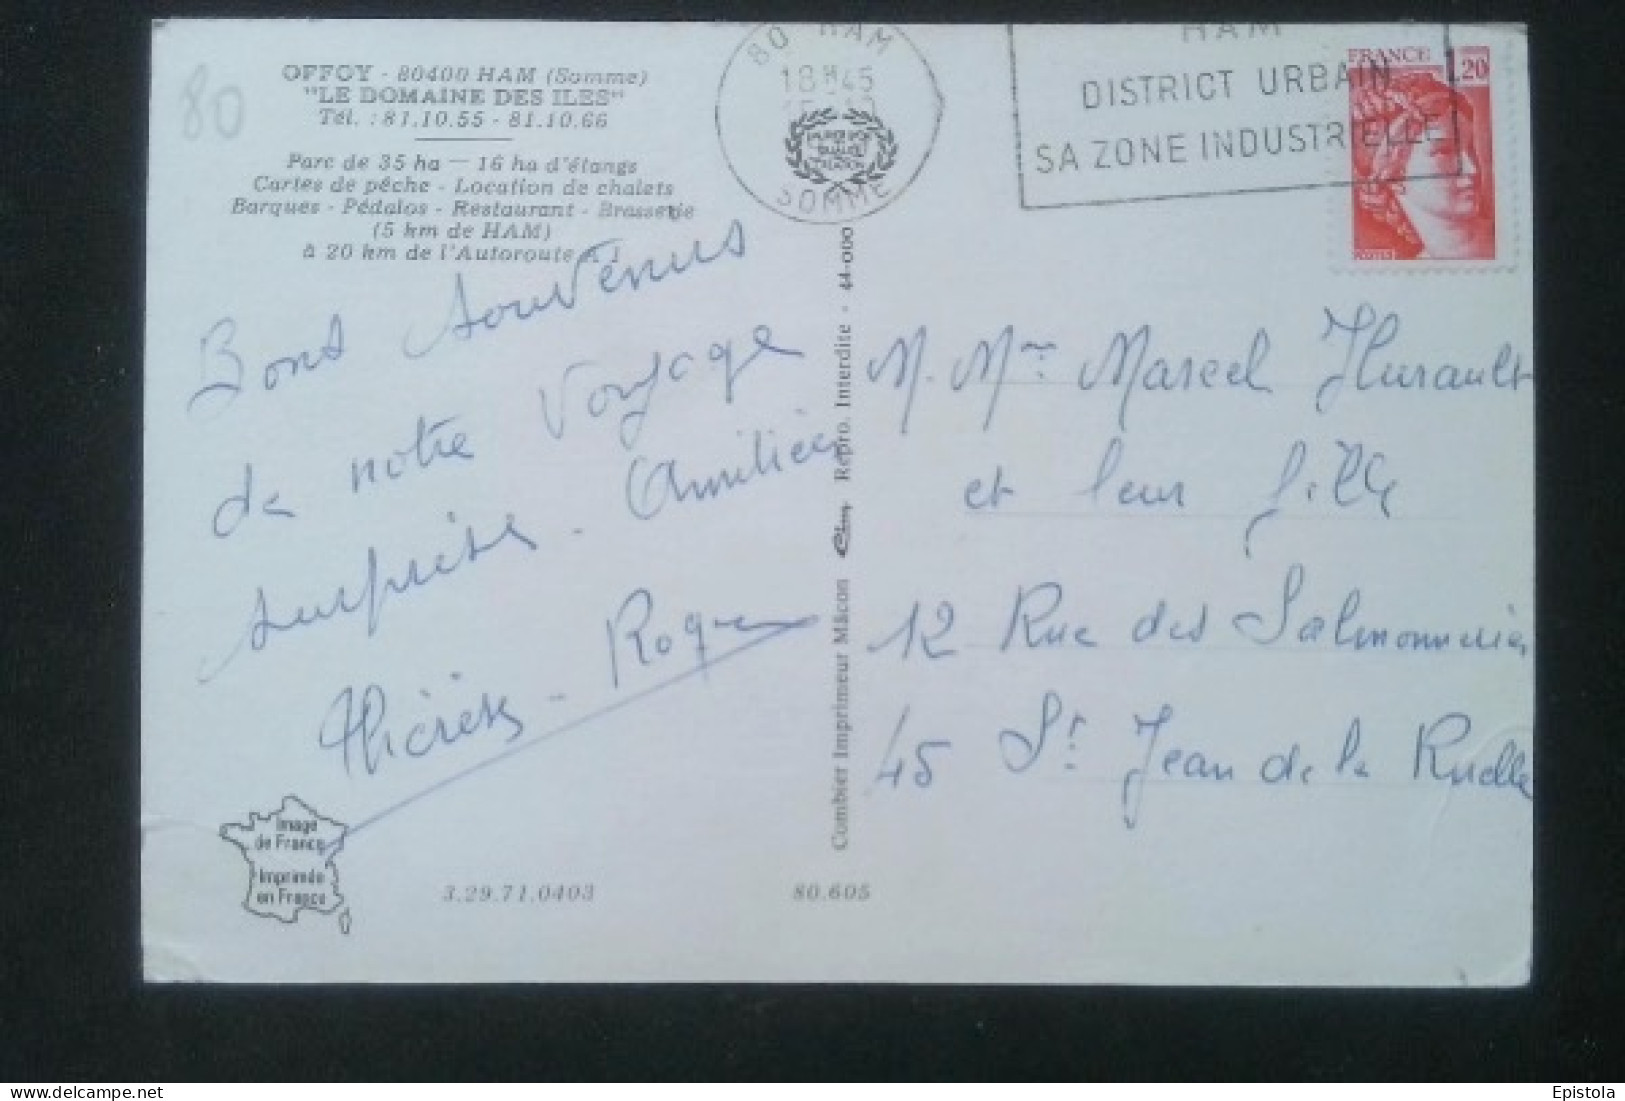 80
OFFOY - 80400 HAM (Somme)
"LE DOMAINE DES ILES"
Tél. : 81.10.55 - 81.10.66
Parc de 35 ha — 16 ha d'étangs
Cartes de pêche - Location de chalets
Barques - Pédalos - Restaurant - Brasserie
(5 km de HAM)
à 20 km de l'Autoroute A 1
Bons souvenirs
de notre voyage
surprise. Amitiés
Thérèse - Roger
Image
de France
Imprimée
en France
3.29.71.0403
80.605
Combier Imprimeur Mâcon Repro. Interdite - 44-000
80 HAM
18H45
SOMME
HAM
DISTRICT URBAIN
SA ZONE INDUSTRIELLE
FRANCE
1,20
POSTES
M. Mme Marcel Hurault
et leur fille
12 Rue des Salmoneries
45 St Jean de la Ruelle
delcampe.net
Epistola